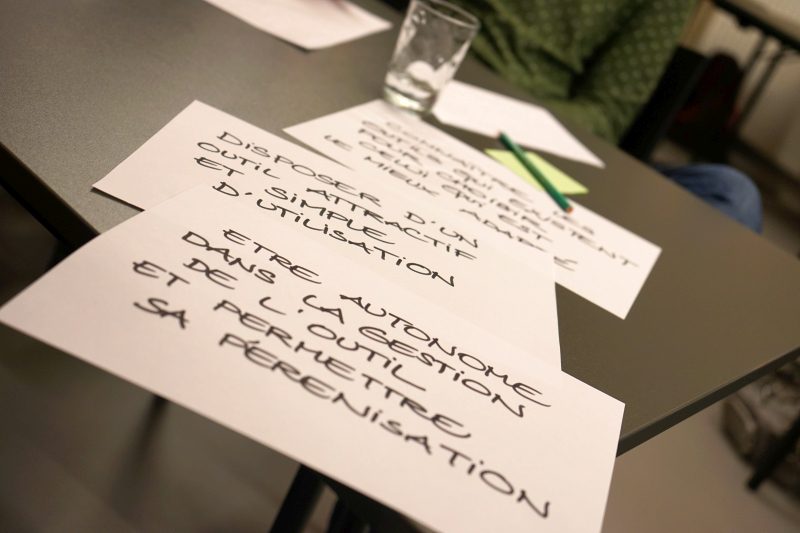 CONNAITRE LES
OUTILS QUI EXISTENT
POUR CHOISIR
CELUI QUI EST
LE MIEUX ADAPTÉ
DISPOSER D'UN
OUTIL ATTRACTIF
ET SIMPLE
D'UTILISATION
ETRE AUTONOME
DANS LA GESTION
DE L'OUTIL
ET PERMETTRE
SA PÉRENISATION